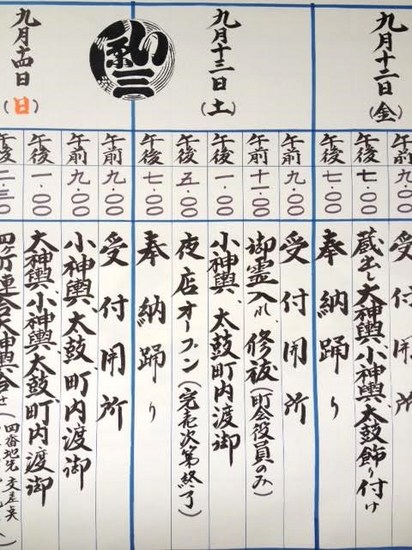 九月十二日(金)
午前 九・00 受付開所
蔵出し大神輿、小神輿、太鼓飾り付け
午後 七・00 奉納踊り
九月十三日(土)
午前 九・00 受付開所
午前 十一・00 御霊入れ、修祓(町会役員のみ)
午後 一・00 小神輿、太鼓町内渡御
午後 五・00 夜店オープン(完売次第終了)
午後 七・00 奉納踊り
九月十四日(日)
午前 九・00 受付開所
午前 九・00 小神輿、太鼓町内渡御
午後 一・00 大神輿、小神輿、太鼓町内渡御
午後 二・三0 四ヶ町連合大神輿合せ(四番地先交差点